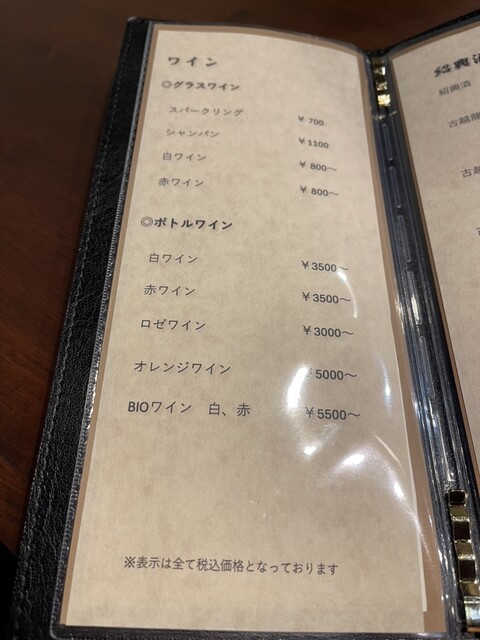 ワイン
◎グラスワイン
スパークリング ￥700
シャンパン ￥1100
白ワイン ￥800〜
赤ワイン ￥800〜
◎ボトルワイン
白ワイン ￥3500〜
赤ワイン ￥3500〜
ロゼワイン ￥3000〜
オレンジワイン ￥5000〜
BIOワイン 白、赤 ￥5500〜
※表示は全て税込価格となっております
紹興酒
紹興酒